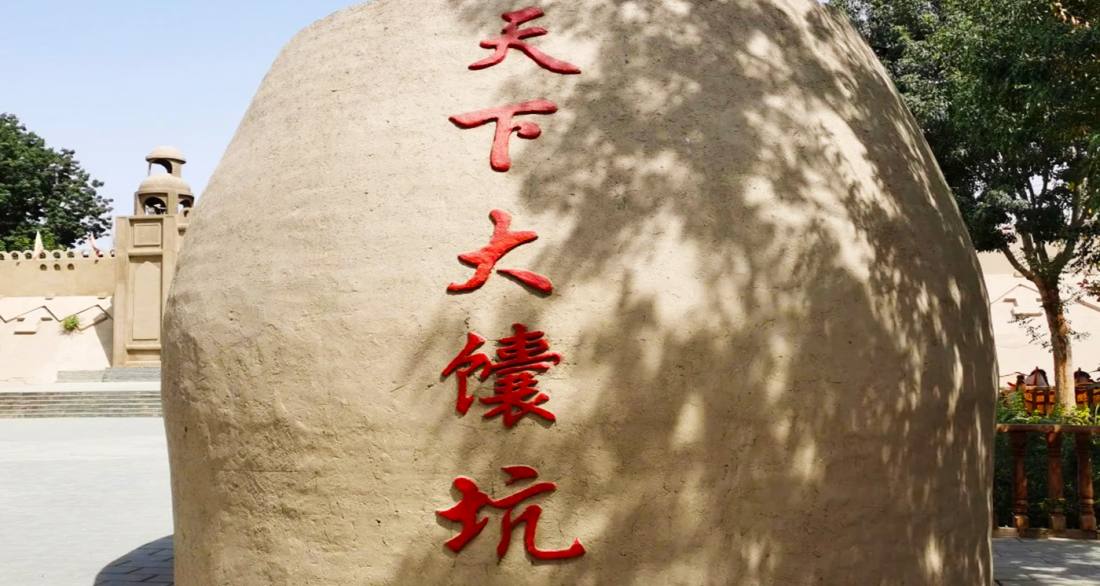 天下大馕坑